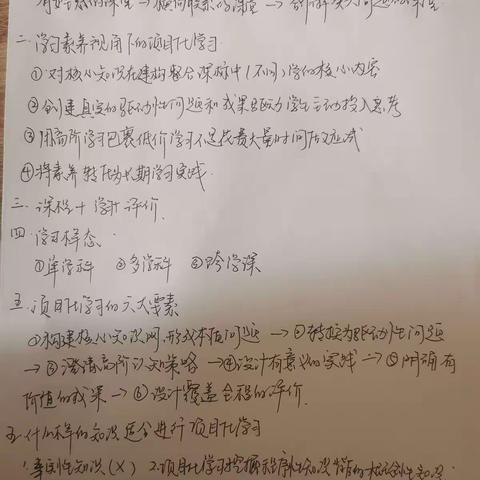 二、学习素养视角下的项目化学习
①对核心知识在建构整合深板中(不同)学的核心内容
②创建真实的驱动性问题和成果驱动学生主动投入思考
③用高阶学习包裹低阶学习
④将素养转化为长期学习实践
三、课程+学评价
四、学习样态
①单学科 ②多学科 ③跨学课
五、项目化学习的六大要素
①构建核心知识网,形成本质问题→②转换为驱动性问题
→③澄清高阶认知策略→④设计有意义的实践→⑤明确有
价值的成果→⑥设计覆盖全程的评价
五、什么样的知识适合进行项目化学习
1.事实性知识(X) 2.项目化学习